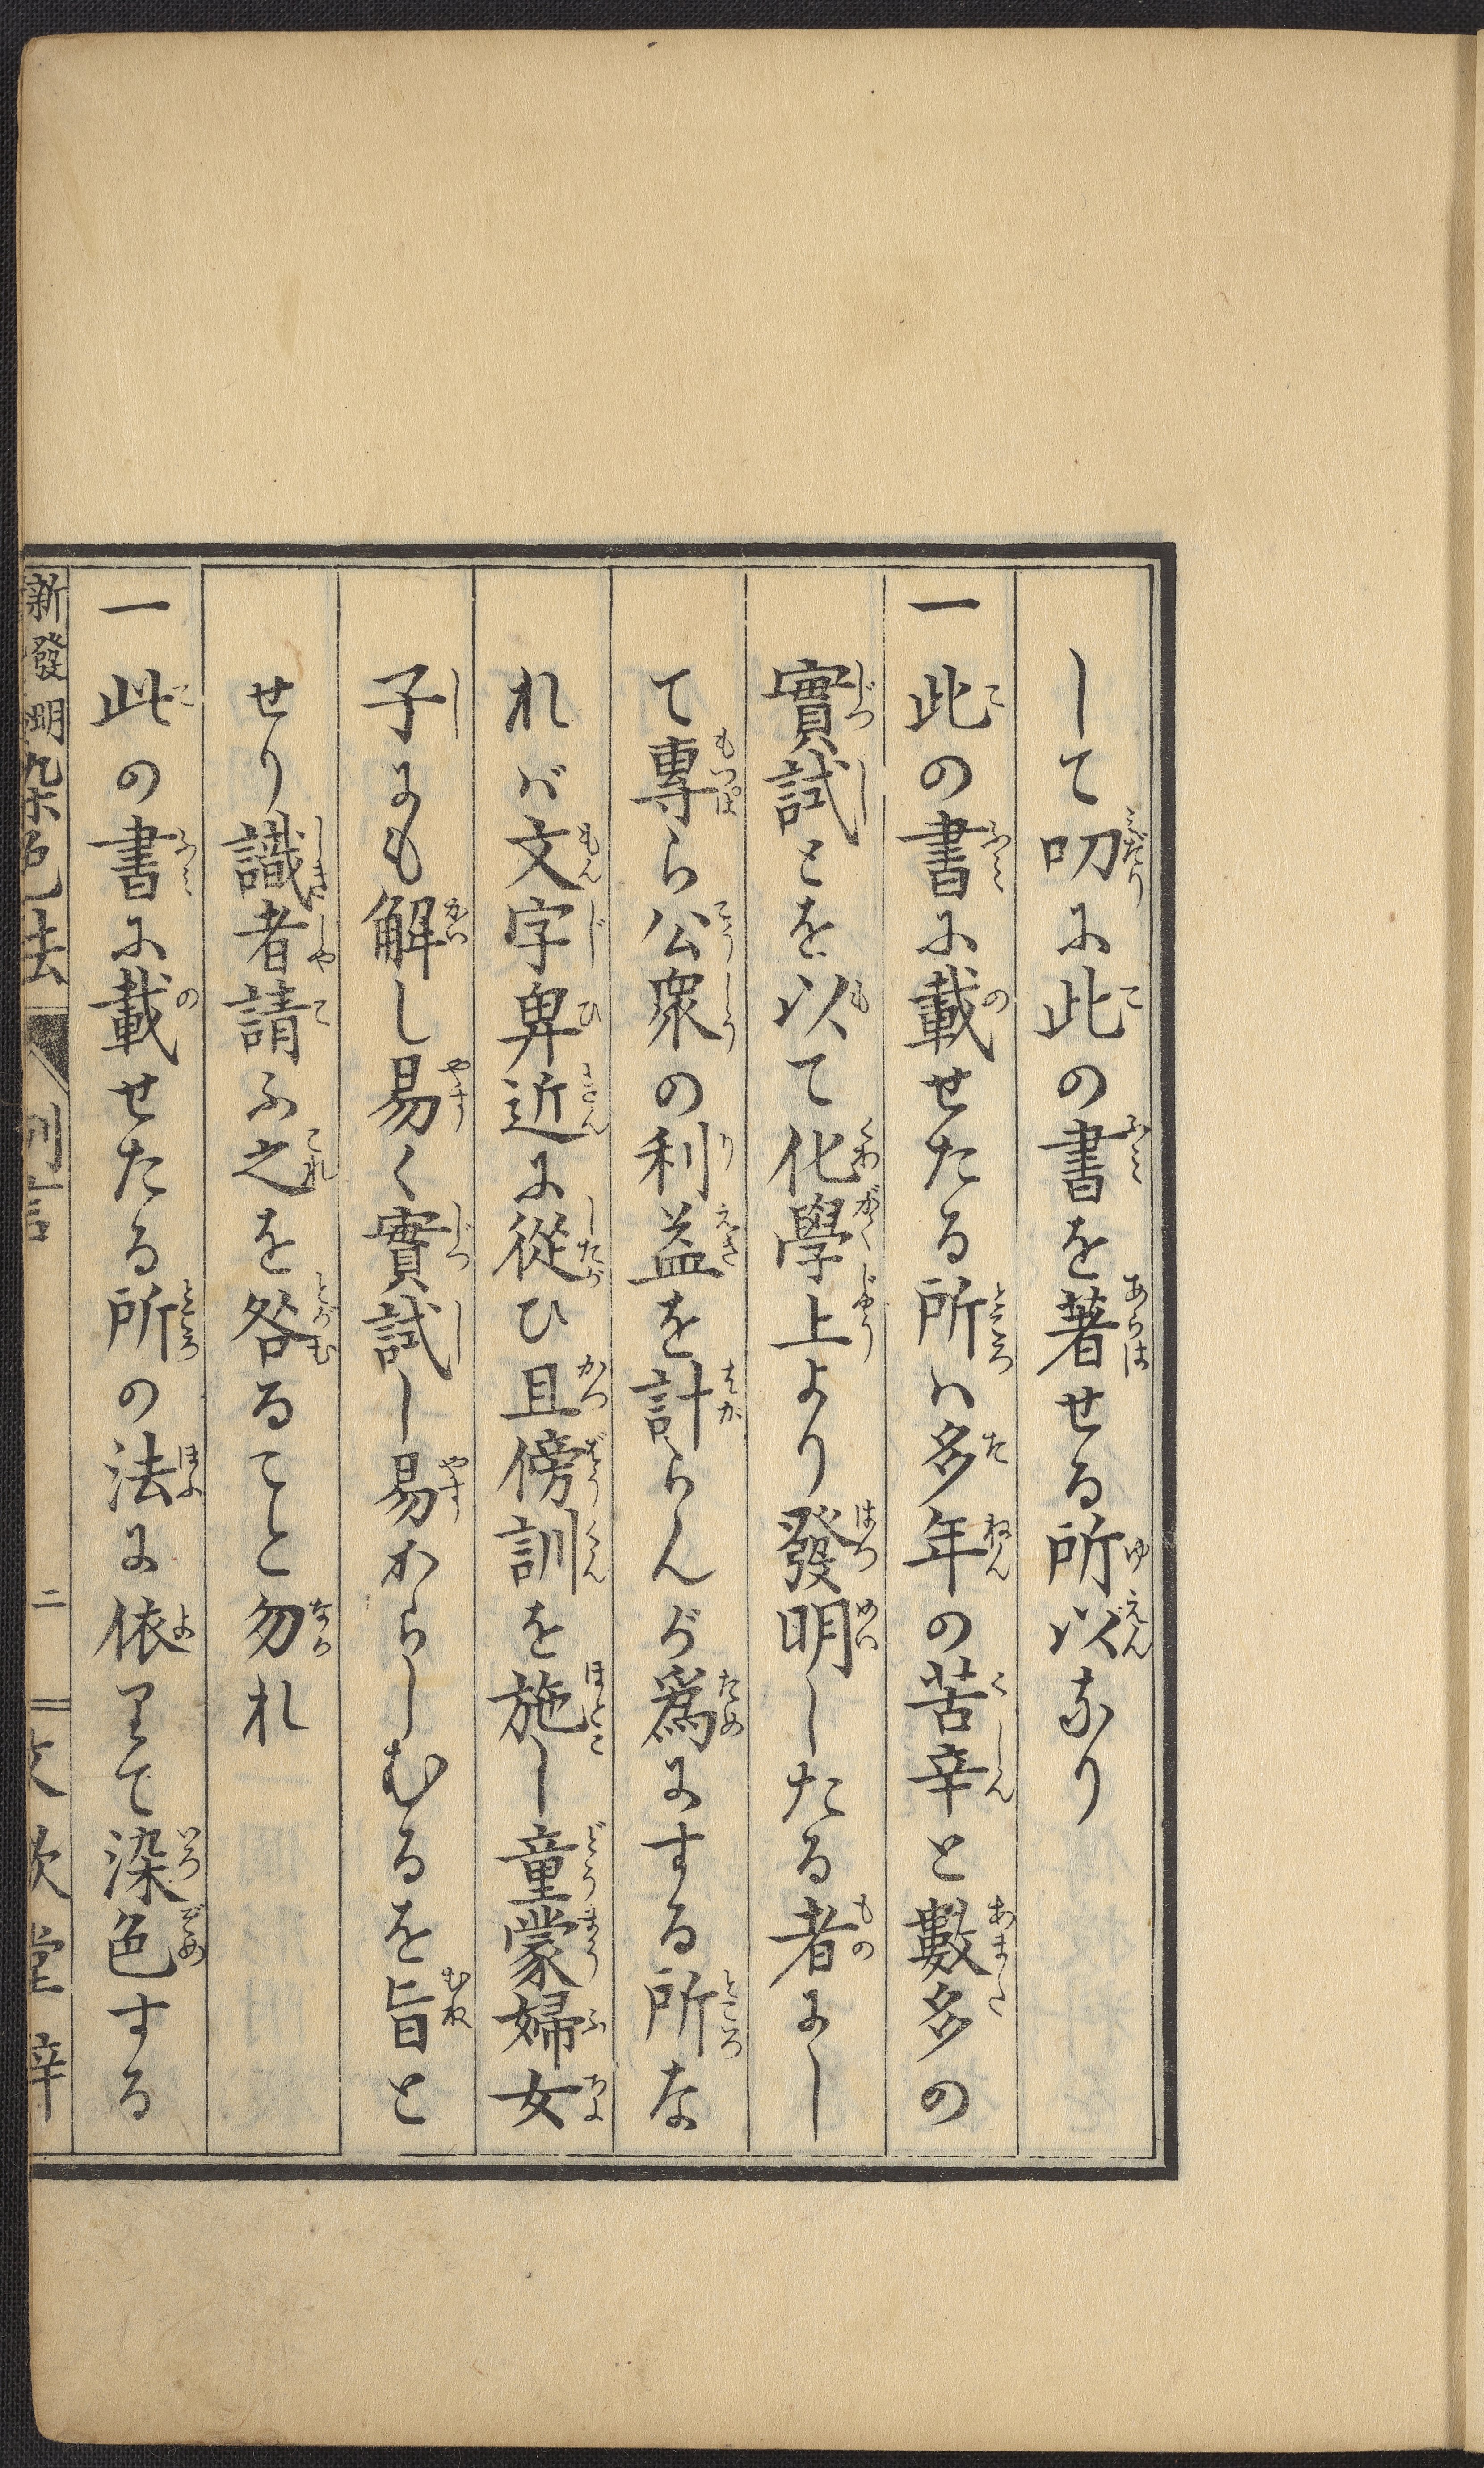 して叨に此の書を著せる所以なり
一此の書に載せたる所ハ多年の苦辛と數多の
實試とを以て化學上より發明したる者にし
て專ら公衆の利益を計らんが爲にする所な
れバ文字卑近に從ひ且傍訓を施し童蒙婦女
子にも解し易く實試し易からしむるを旨と
せり識者請ふ之を咎ることと勿れ
一此の書に載せたる所の法に依りて染色する
新發明染色法 例言 二 文欽堂梓